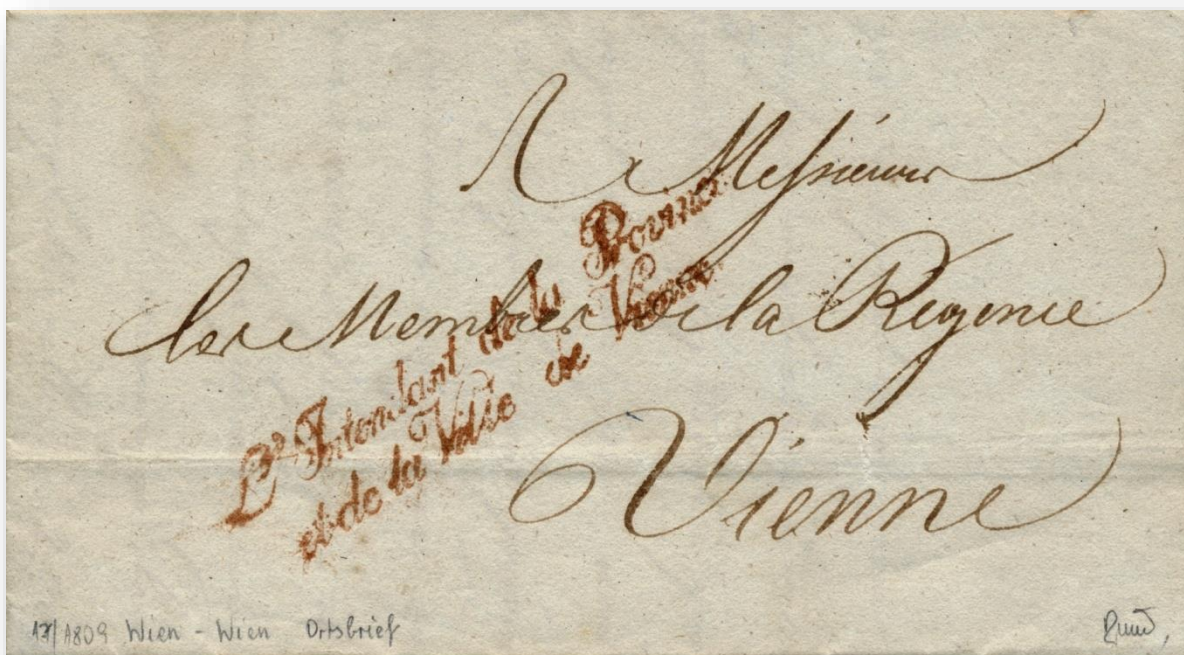 A Messieurs
les Membres de la Régence
Vienne
L'Intendant de la Province
et de la Ville de Vienne
1809 Wien - Wien Ortsbrief